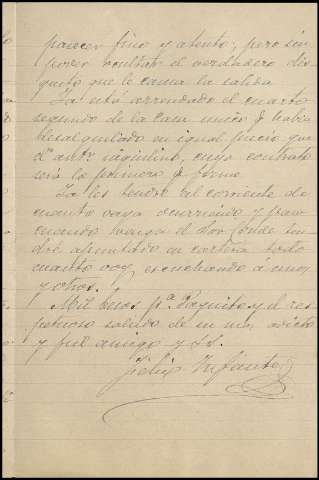 parecer fino y atento; pero sin
poder ocultar el verdadero dis
gusto que le causa la salida
Ya está arrendado el cuarto
segundo de la casa única q. había
desalquilado en igual precio que
el antr inquilino, cuyo contrato
será lo primero q. firme
Ya les tendré al corriente de
cuanto vaya ocurriendo y para
cuando venga el Sor Conde ten
dré apuntado en cartera todo
cuanto voy escuchando á unos
y otros.
Mil besos pa. Paquito y el res
petuoso saludo de su más adicto
y fiel amigo y S.S.
Felix Infante